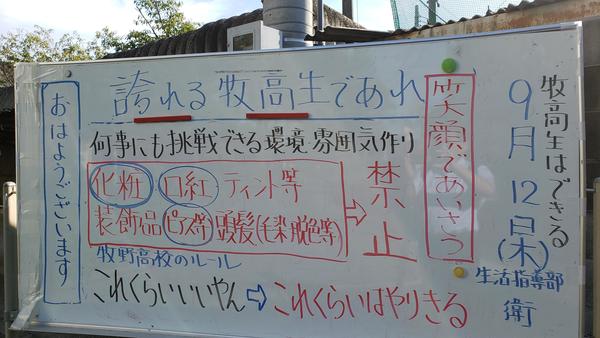 牧高生はできる
9月12日(木)
生活指導部
衛
笑顔であいさつ
誇れる牧高生であれ
何事にも挑戦できる環境 雰囲気作り
化粧 口紅 ティント等
装飾品 ピアス等 頭髪(毛染 脱色等)
⇨ 禁止
牧野高校のルール
これくらいいいやん ⇨ これくらいはやりきる
おはようございます